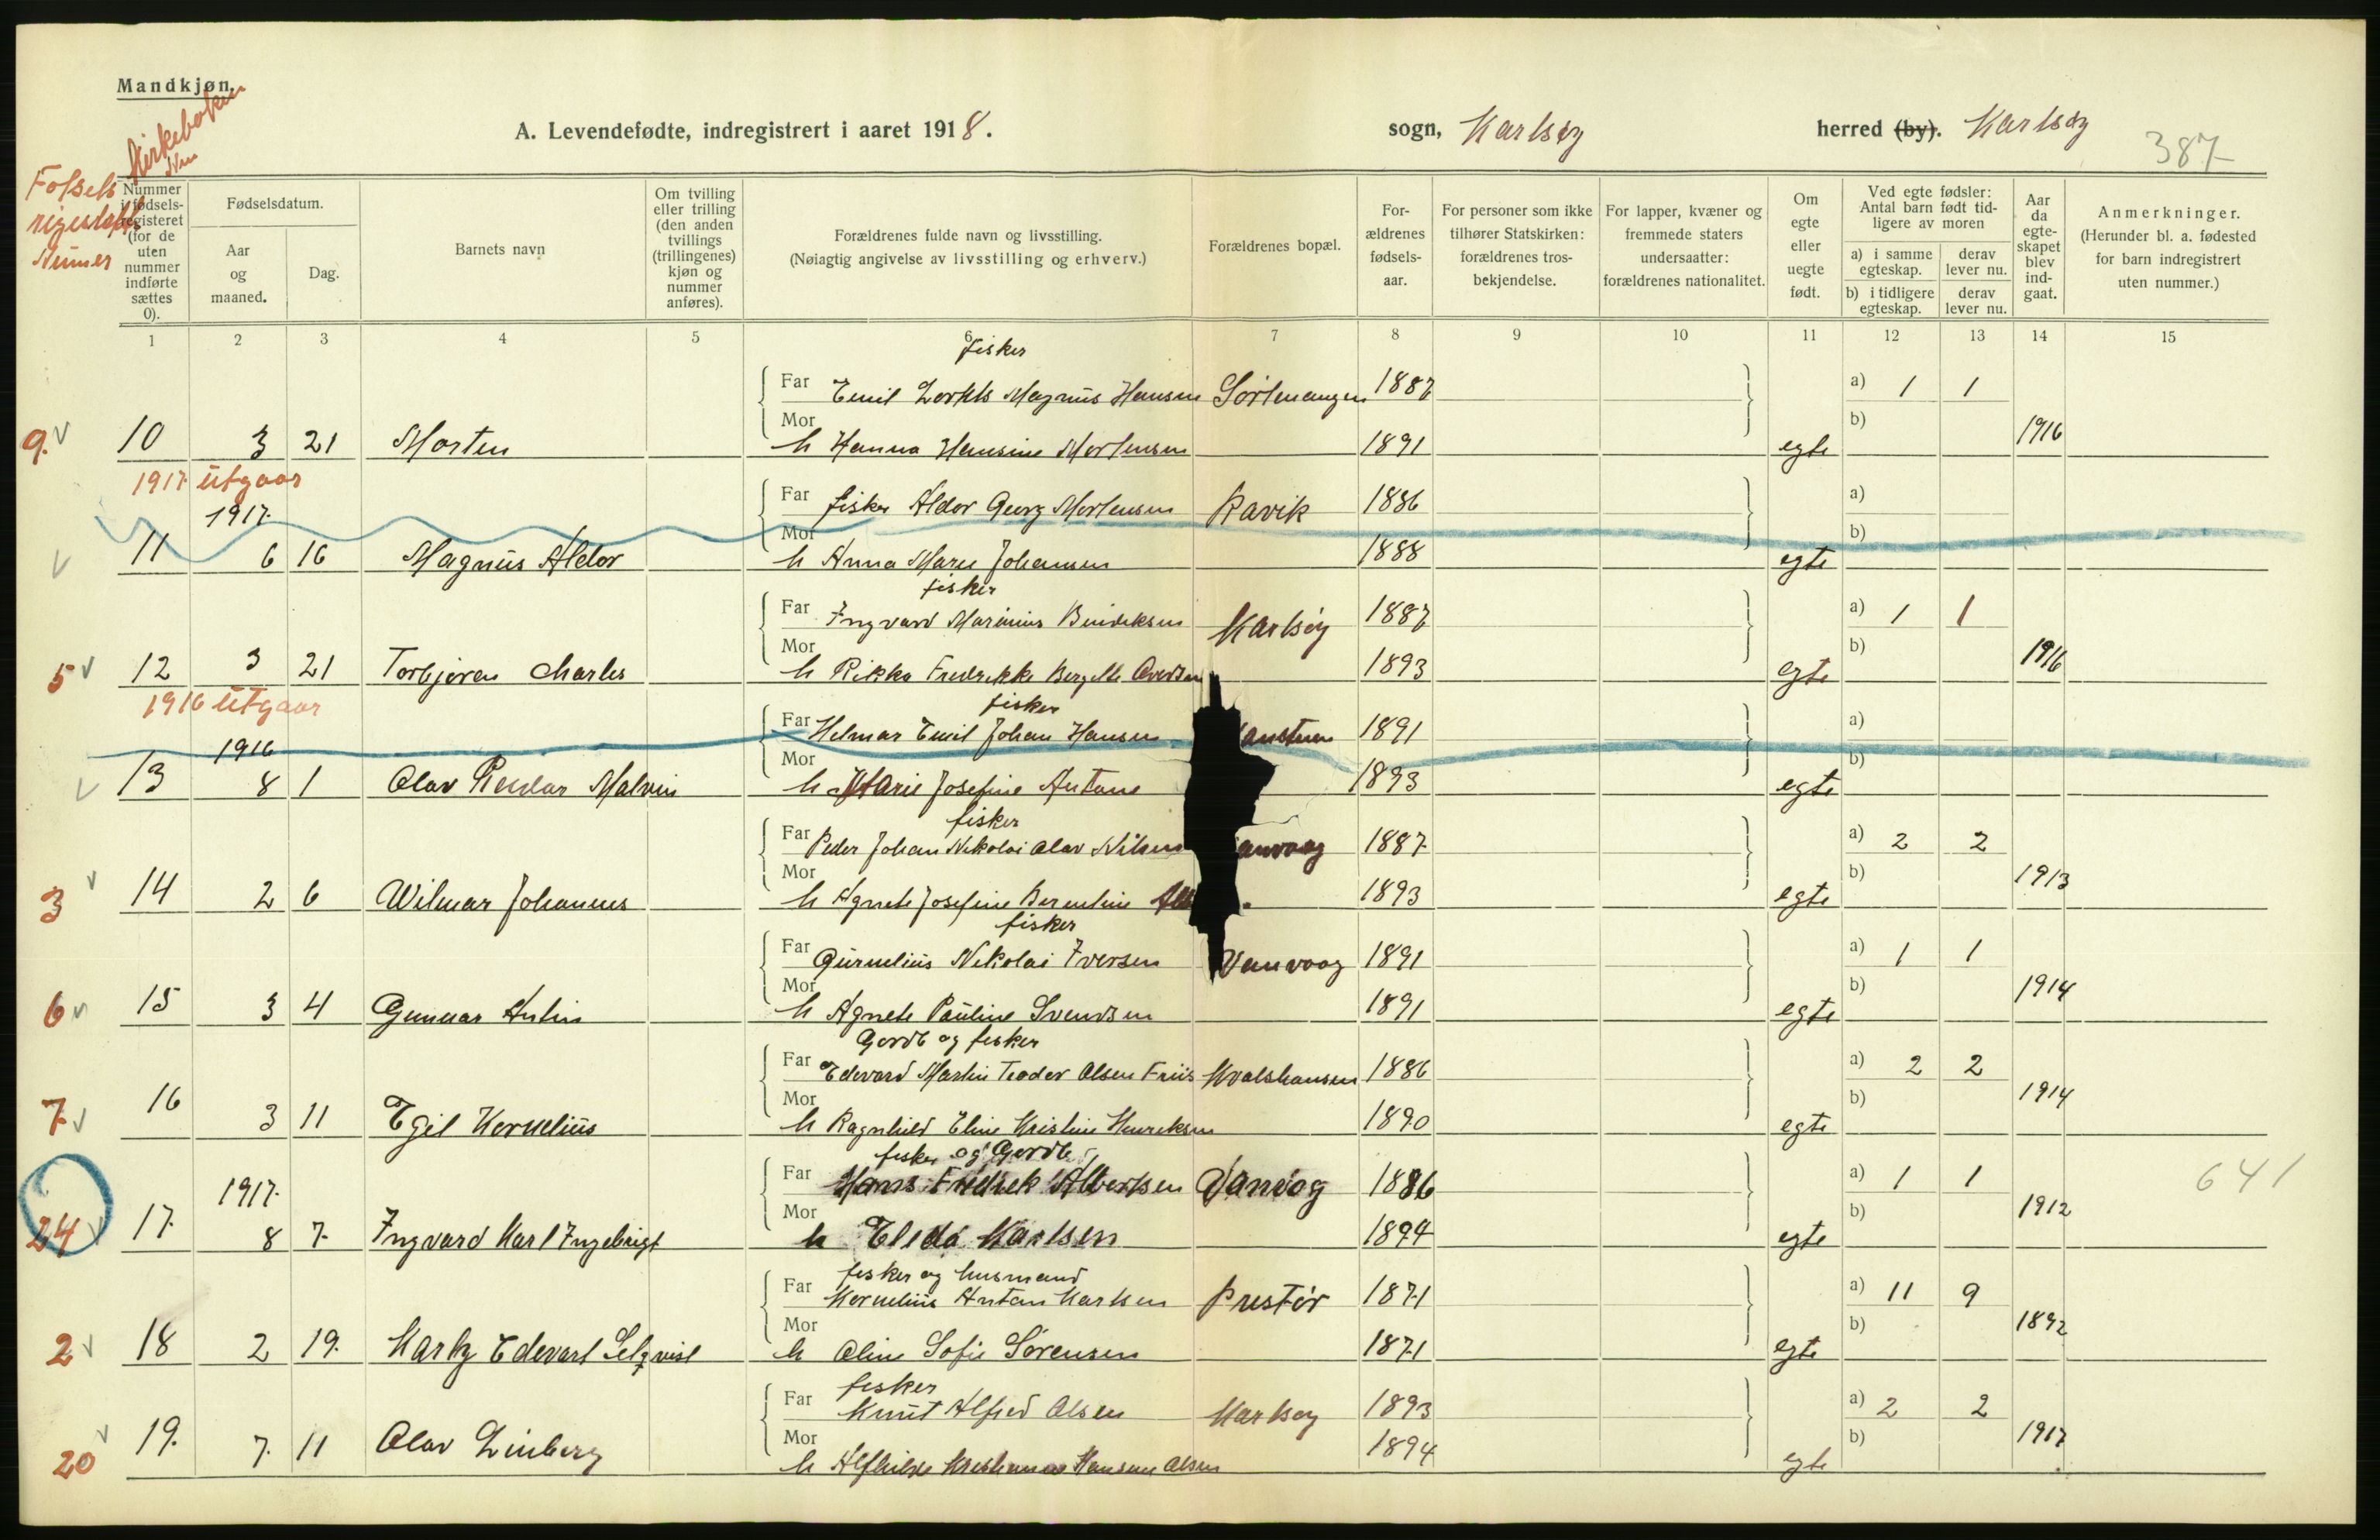 Mandkjøn.
Kirkeboken
Nm
A. Levendefødte, indregistrert i aaret 1918.
sogn, Karlsøy
herred (by). Karlsøy
387
Nummer i fødsels-registeret (for de uten nummer indførte sættes 0).
Fødselsdatum.
Aar og maaned.
Dag.
Barnets navn
Om tvilling eller trilling (den anden tvillings (trillingenes) kjøn og nummer anføres).
Forældrenes fulde navn og livsstilling.
(Nøiagtig angivelse av livsstilling og erhverv.)
Forældrenes bopæl.
For-ældrenes fødsels-aar.
For personer som ikke tilhører Statskirken: forældrenes tros-bekjendelse.
For lapper, kvæner og fremmede staters undersaatter: forældrenes nationalitet.
Om egte eller uegte født.
Ved egte fødsler: Antal barn født tid-ligere av moren
a) i samme egteskap.
derav lever nu.
b) i tidligere egteskap.
derav lever nu.
Aar da egte-skapet blev ind-gaat.
Anmerkninger.
(Herunder bl. a. fødested for barn indregistrert uten nummer.)
1 2 3 4 5 6 7 8 9 10 11 12 13 14 15
fisker
Far Emil Magnus Hansen 1887 a) 1 1
9. 10 3 21 Morten Mor h Hanna Hansine Mortensen 1891 egte b) 1916
1917 utgaar
1917. Far fisker Aldor Georg Mortensen Ravik 1886 a)
11 6 16 Magnus Aldor Mor h Anna Marie Johansen 1888 egte b)
fisker
Far Ingvard Marinius Bendeksen Karlsøy 1887 a) 1 1
5 12 3 21 Torbjøren Charles Mor h Rikka Fredrikke Bergette 1893 egte b) 1916
1916 utgaar
fisker
1916 Far Helmar Emil Johan Hansen 1891 a)
13 8 1 Olav Reidar Malvin Mor h Marie Josefine Antone 1893 egte b)
fisker
Far Peder Johan Nikolai Olav Nilsen anvaag 1887 a) 2 2
3 14 2 6 Wilmar Johannes Mor h Agnete Josefine Berentine 1893 egte b) 1913
fisker
Far Gurnelius Nikolai Iversen Vanvaag 1891 a) 1 1
6 15 3 4 Gunnar Mor h Agnete Pauline Svendsen 1891 egte b) 1914
Gordb og fisker
Far Edevard Martin Teodor Olsen Friis Kvalshausen 1886 a) 2 2
7 16 3 11 Egil Kornelius Mor h Ragnhild Eline Kristine Henreksen 1890 egte b) 1914
fisker og Gordb
1917. Far Hans Fredrek Albertsen Vanvåg 1886 a) 1 1 641
24 17. 8 7. Ingvard Karl Ingebrigt Mor h Elida Karlsen 1894 egte b) 1912
fisker og husmand
Far Kornelius Antan Karlsen 1871 a) 11 9
2 18 2 19. Edevart Selqvist Mor h Oline Sofie Sørensen 1871 egte b) 1892
fisker
Far Knut Alfred Olsen Karlsøy 1893 a) 2 2
20 19. 7. 11 Olav Linberg Mor h Alfhilde Hansen Olsen 1894 egte b) 1917